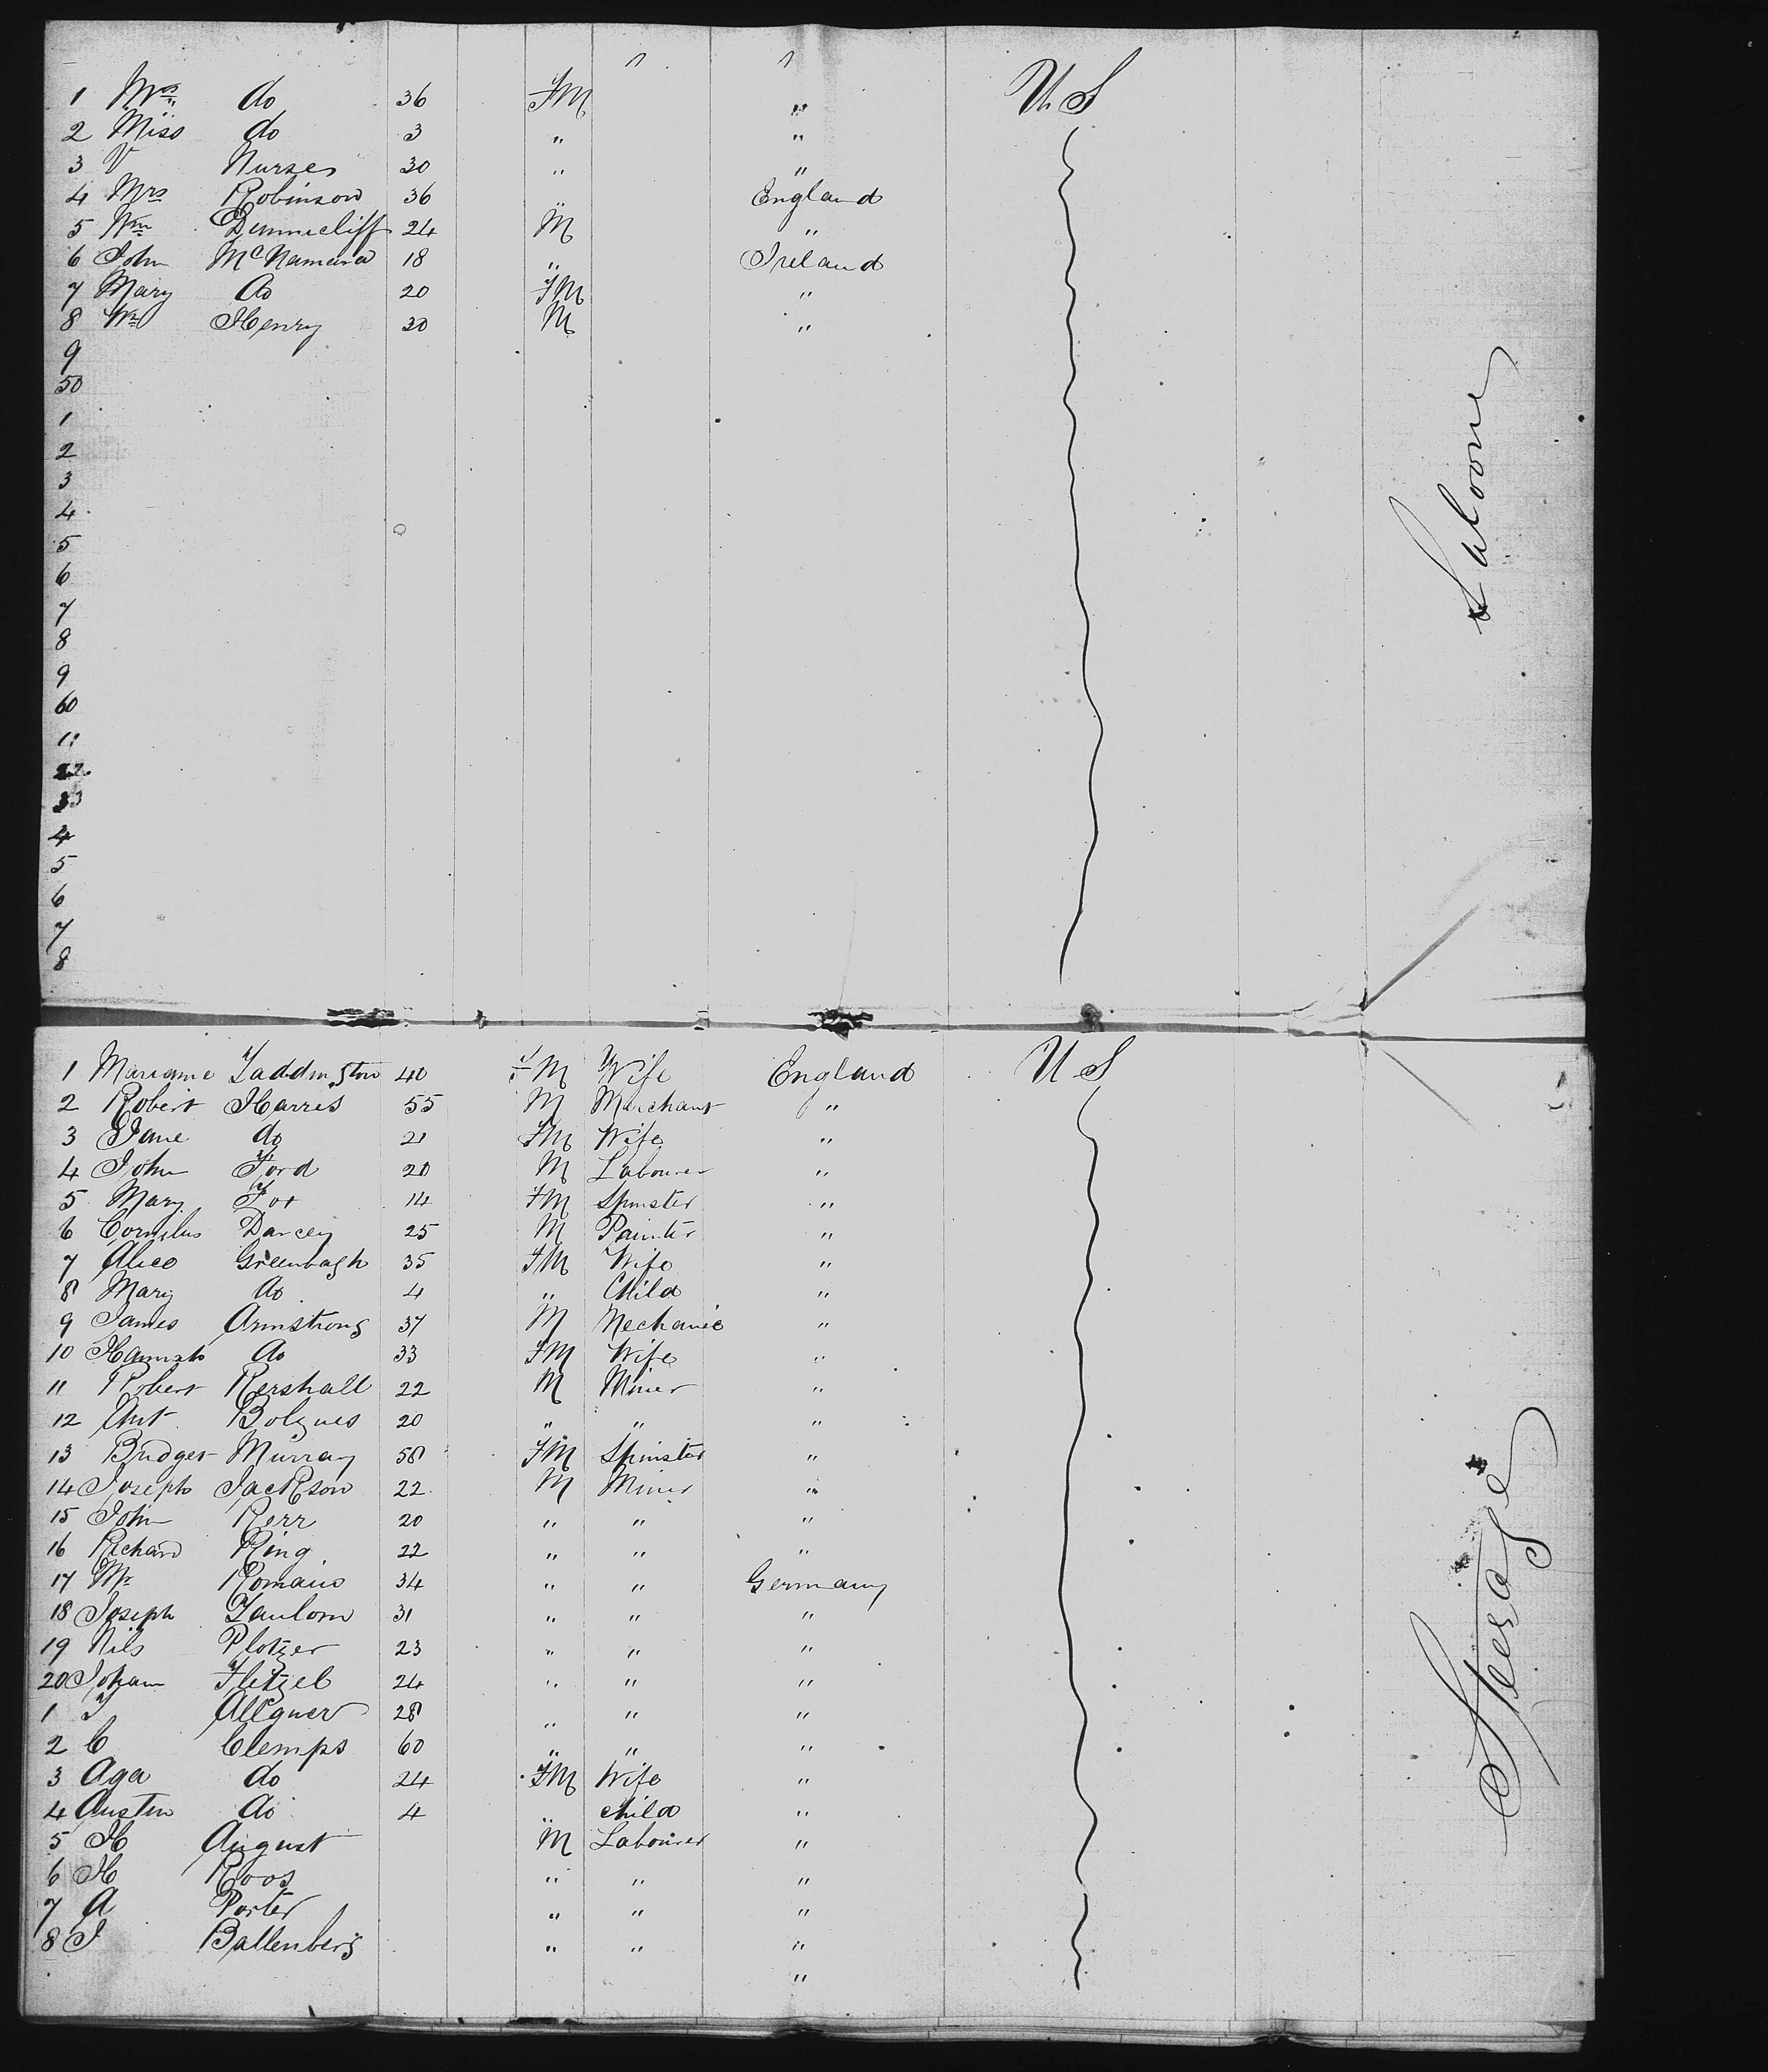 1 Mrs do 36 FM " U S
2 Miss do 3 " "
3 V Nurse 30 " "
4 Mrs Robinson 36 " England
5 Wm Dunnicliff 24 M "
6 John McNamara 18 " Ireland
7 Mary do 20 FM "
8 Wm Henry 30 M "
9
50
1
2
3
4
5
6
7
8
9
60
1
2
3
4
5
6
7
8
Saloon
1 Marianne Taddington 40 FM Wife England U S
2 Robert Harris 55 M Merchant "
3 Jane do 21 FM Wife "
4 John Ford 20 M Labourer "
5 Mary Fox 14 FM Spinster "
6 Cornelius Darcey 25 M Painter "
7 Alice Greenhagh 35 FM Wife "
8 Mary do 4 " Child "
9 James Armstrong 37 M Mechanic "
10 Hannah do 33 FM Wife "
11 Robert Kershall 22 M Miner "
12 Ant 20 " " "
13 Bridget Murray 58 FM Spinster "
14 Joseph Jackson 22 M Miner "
15 John Kerr 20 " " "
16 Richard King 22 " " "
17 Mr Romais 34 " " Germany
18 Joseph 31 " " "
19 Nils Plotzer 23 " " "
20 Johann Fletzel 24 " " "
1 Allgner 28 " " "
2 C Clemps 60 " " "
3 Aga do 24 FM Wife "
4 Austin do 4 " Child "
5 H August M Labourer "
6 H Roos " " "
7 A Porter " " "
8 J Ballenberg " " "
"
Steerage